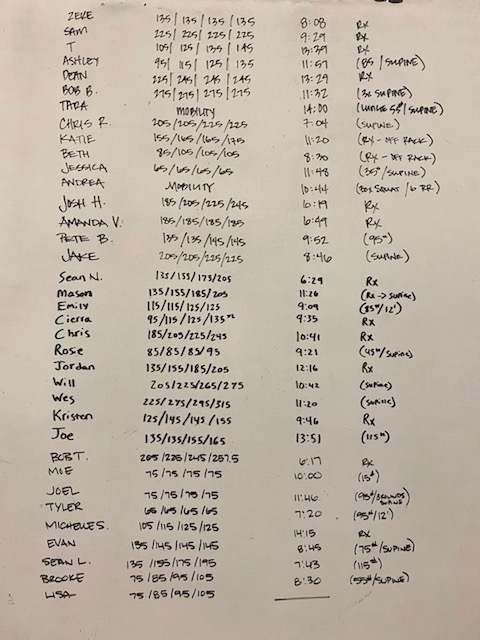 ZEKE 135/135/135/135 8:08 Rx
SAM 225/225/225/225 9:29 Rx
T 105/125/135/145 13:39 Rx
ASHLEY 95/115/125/135 11:57 (85/SUPINE)
DEAN 225/245/245/245 13:29 Rx
BOB B. 275/275/275/275 11:32 (3x SUPINE)
TARA MOBILITY 14:00 (LUNGE 55#/SUPINE)
CHRIS R. 205/205/225/225 7:04 (SUPINE)
KATIE 155/165/165/175 11:20 (RX - OFF RACK)
BETH 85/105/105/105 8:30 (RX - OFF RACK)
JESSICA 65/65/65/65 11:48 (35#/SUPINE)
ANDREA MOBILITY 10:44 (20x SQUAT/6 RR)
JOSH H. 185/205/225/245 6:19 Rx
AMANDA V. 185/185/185/185 6:49 Rx
PETE B. 135/135/145/145 9:52 (95#)
JAKE 205/205/225/225 8:46 (SUPINE)
Sean N. 135/155/175/205 6:29 Rx
Mason 135/155/185/205 11:26 (Rx -> Supine)
Emily 115/115/125/125 9:09 (83#/12')
Cierra 95/115/125/135 9:35 Rx
Chris 185/205/225/245 10:41 Rx
Rosie 85/85/85/95 9:21 (45#/Supine)
Jordan 135/155/185/205 12:16 Rx
Will 205/225/265/275 10:42 (Supine)
Wes 225/275/295/315 11:20 (Supine)
Kristen 125/145/145/155 9:46 Rx
Joe 135/135/155/165 13:51 (115#)
BOB T. 205/225/245/257.5 6:17 Rx
MOE 75/75/75/75 10:00 (15#)
JOEL 75/75/75/75 11:46 (95#/3 ROUNDS SUPINE)
TYLER 65/65/65/65 7:20 (95#/12')
MICHELLE S. 105/115/125/125 14:15 Rx
EVAN 135/145/145/145 8:45 (75#/SUPINE)
SEAN L. 135/155/175/195 7:43 (115#)
BROOKE 75/85/95/105 8:30 (55#/SUPINE)
LISA 75/85/95/105